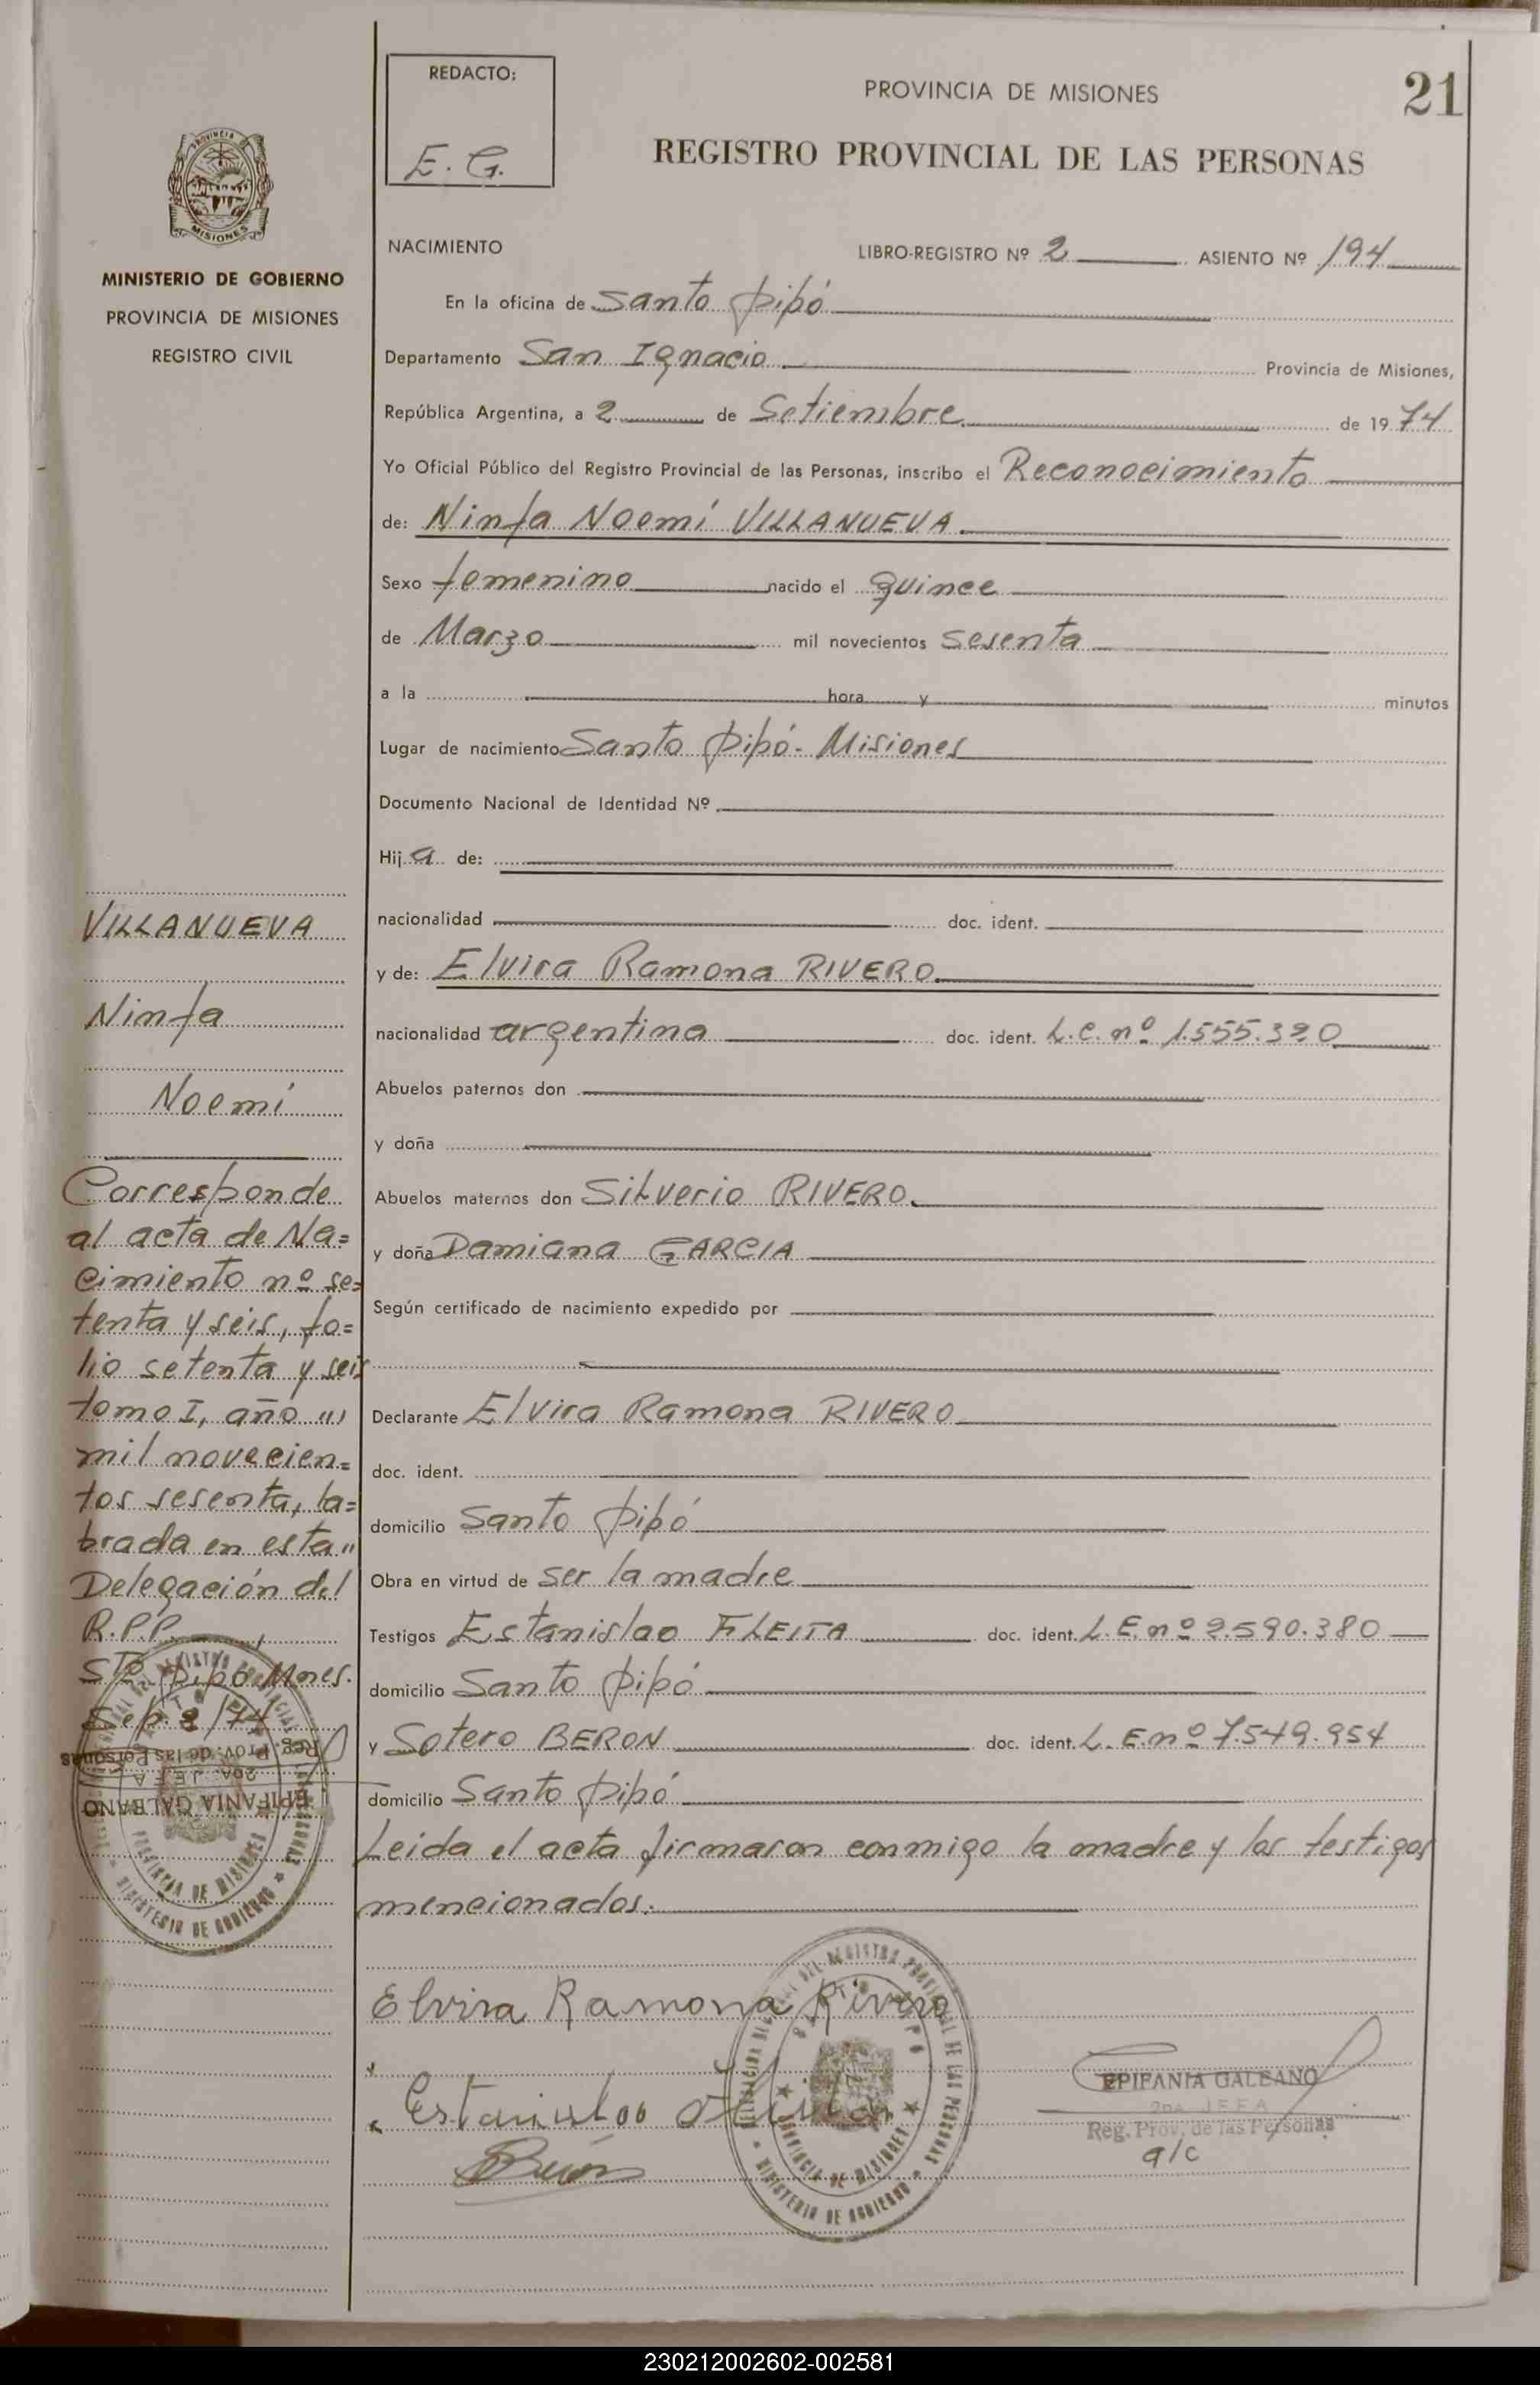 REDACTO:
E. G.
PROVINCIA DE MISIONES
21
REGISTRO PROVINCIAL DE LAS PERSONAS
PROVINCIA
MISIONES
MINISTERIO DE GOBIERNO
PROVINCIA DE MISIONES
REGISTRO CIVIL
NACIMIENTO LIBRO-REGISTRO Nº 2 ASIENTO Nº 194
En la oficina de Santo Pipó
Departamento San Ignacio Provincia de Misiones,
República Argentina, a 2 de Setiembre de 1974
Yo Oficial Público del Registro Provincial de las Personas, inscribo el Reconocimiento
de: Ninfa Noemí VILLANUEVA.
Sexo femenino nacido el quince
de Marzo mil novecientos sesenta
a la hora y minutos
Lugar de nacimiento Santo Pipó- Misiones
Documento Nacional de Identidad Nº
Hija de:
nacionalidad doc. ident.
y de: Elvira Ramona RIVERO.
nacionalidad argentina doc. ident. L.C. nº 1.555.320
Abuelos paternos don
y doña
Abuelos maternos don Silverio RIVERO.
y doña Damiana GARCIA
Según certificado de nacimiento expedido por
Declarante Elvira Ramona RIVERO
doc. ident.
domicilio Santo Pipó
Obra en virtud de ser la madre
Testigos Estanislao FLEITA doc. ident. L.E. nº 2.590.380
domicilio Santo Pipó
y Sotero BERON doc. ident. L.E. nº 7.549.954
domicilio Santo Pipó
Leida el acta firmaron conmigo la madre y los testigos
mencionados.
Elvira Ramona Rivero
EPIFANIA GALEANO
2DA. JEFA
Reg. Prov. de las Personas
a/c
VILLANUEVA
Ninfa
Noemí
Corresponde
al acta de Na=
cimiento nº se=
tenta y seis, fo=
lio setenta y seis
tomo I, año "'
mil novecien=
tos sesenta, la=
brada en esta "
Delegación del
R.P.P.
Sto Pipó Mnes.
Sep. 2/74
EPIFANIA GALEANO
2DA. JEFA
Reg. Prov. de las Personas
PROVINCIA DE MISIONES
MINISTERIO DE GOBIERNO
230212002602-002581